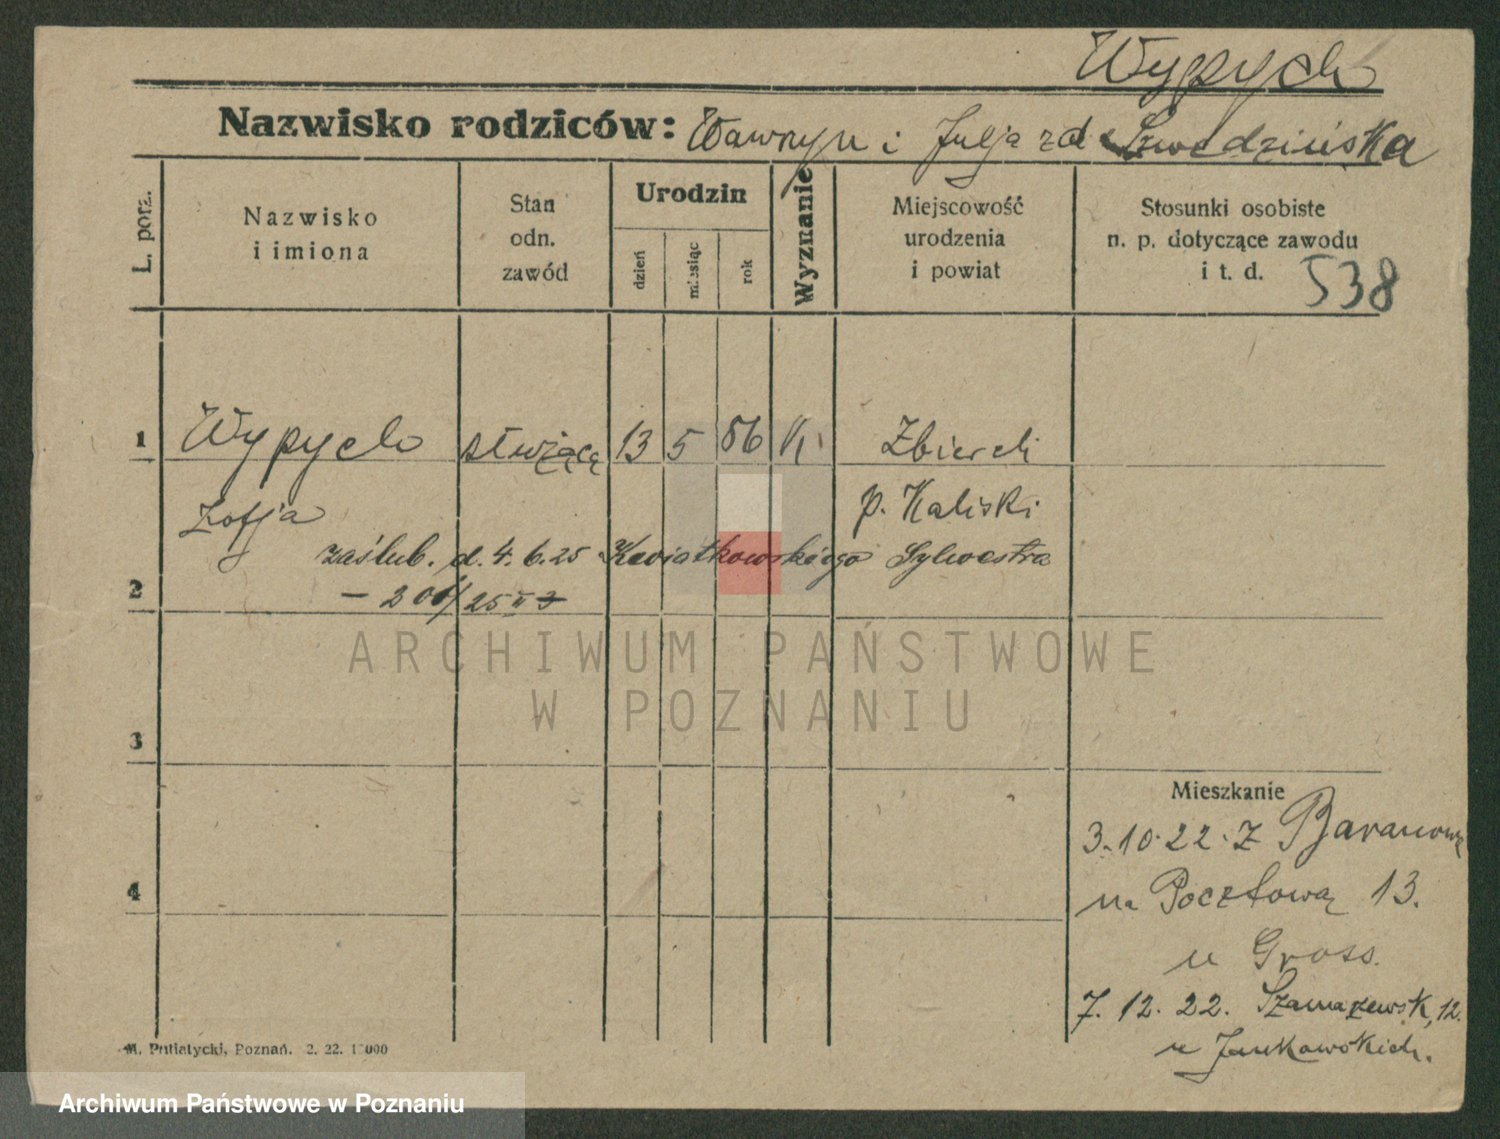 Wypych
Nazwisko rodziców: Wawrzyn i Julja z d. Szwedzińska
L. porz.
Nazwisko i imiona
Stan odn. zawód
Urodzin
dzień
miesiąc
rok
Wyznanie
Miejscowość urodzenia i powiat
Stosunki osobiste n. p. dotyczące zawodu i t. d.
538
1 Wypych służąca 13 5 86 k. Zbiersk
Zofja p. Kaliski
zaślub. d. 4. 6. 25 Kwiatkowskiego Sylwestra
2
3
ARCHIWUM PAŃSTWOWE
W POZNANIU
Mieszkanie
3.10.22. z Baranowa
na Pocztową 13.
u Gross.
4
7. 12. 22. Szamarzewsk. 12.
u Jankowskich.
M. Putiatycki, Poznań. 2. 22.
Archiwum Państwowe w Poznaniu